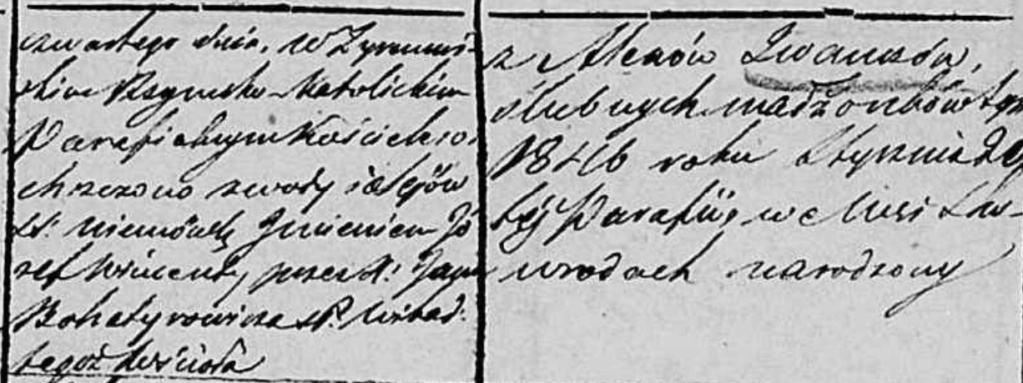 czwartego dnia, w Zyrmuń-
skim Rzymsko-Katolickim
Parafialnym Kościele o-
chrzczono z wody i olejów
St: niemowlę Imieniem Jó-
zef Wincenty, przez X: Jana
Bohatyrowicza
tegoż kościoła
z Alexów Iwanusów,
ślubnych małżonków syn
1846 roku Stycznia 20
tej Parafii, we wsi
narodzony